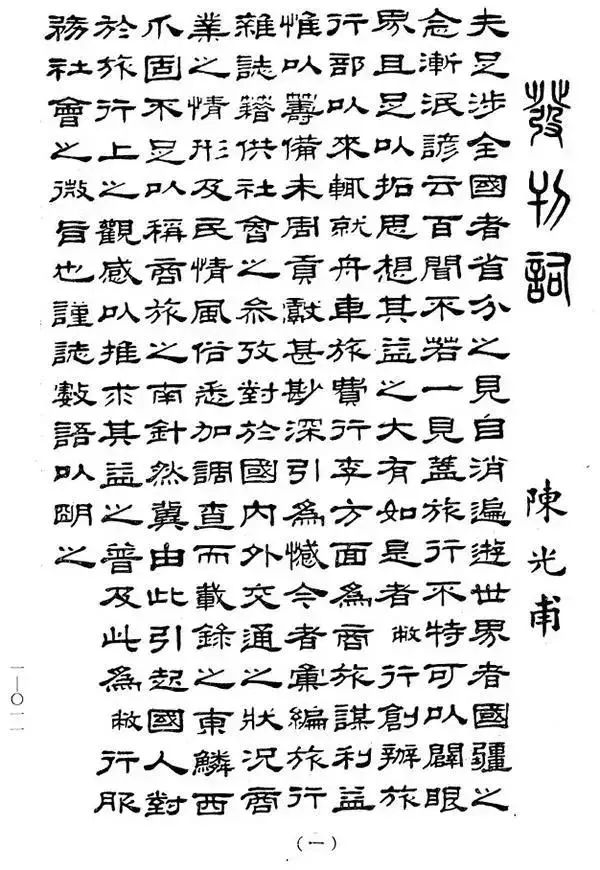 發刊詞
陳光甫
夫足涉全國者省分之見自消遍遊世界者國疆之
念漸泯諺云百聞不若一見蓋旅行不特可以闢眼
界且足以拓思想其益之大有如是者敝行創辦旅
行部以來輒就舟車旅費行李方面為商旅謀利益
惟以籌備未周貢獻甚尠深引為憾今者彙編旅行
雜誌籍供社會之參攷對於國內外交通之狀況商
業之情形及民情風俗悉加調查而載錄之東鱗西
爪固不足以稱商旅之南針然冀由此引起國人對
於旅行上之觀感以推求其益之普及此為敝行服
務社會之微旨也謹誌數語以明之
一—〇一一
(一)